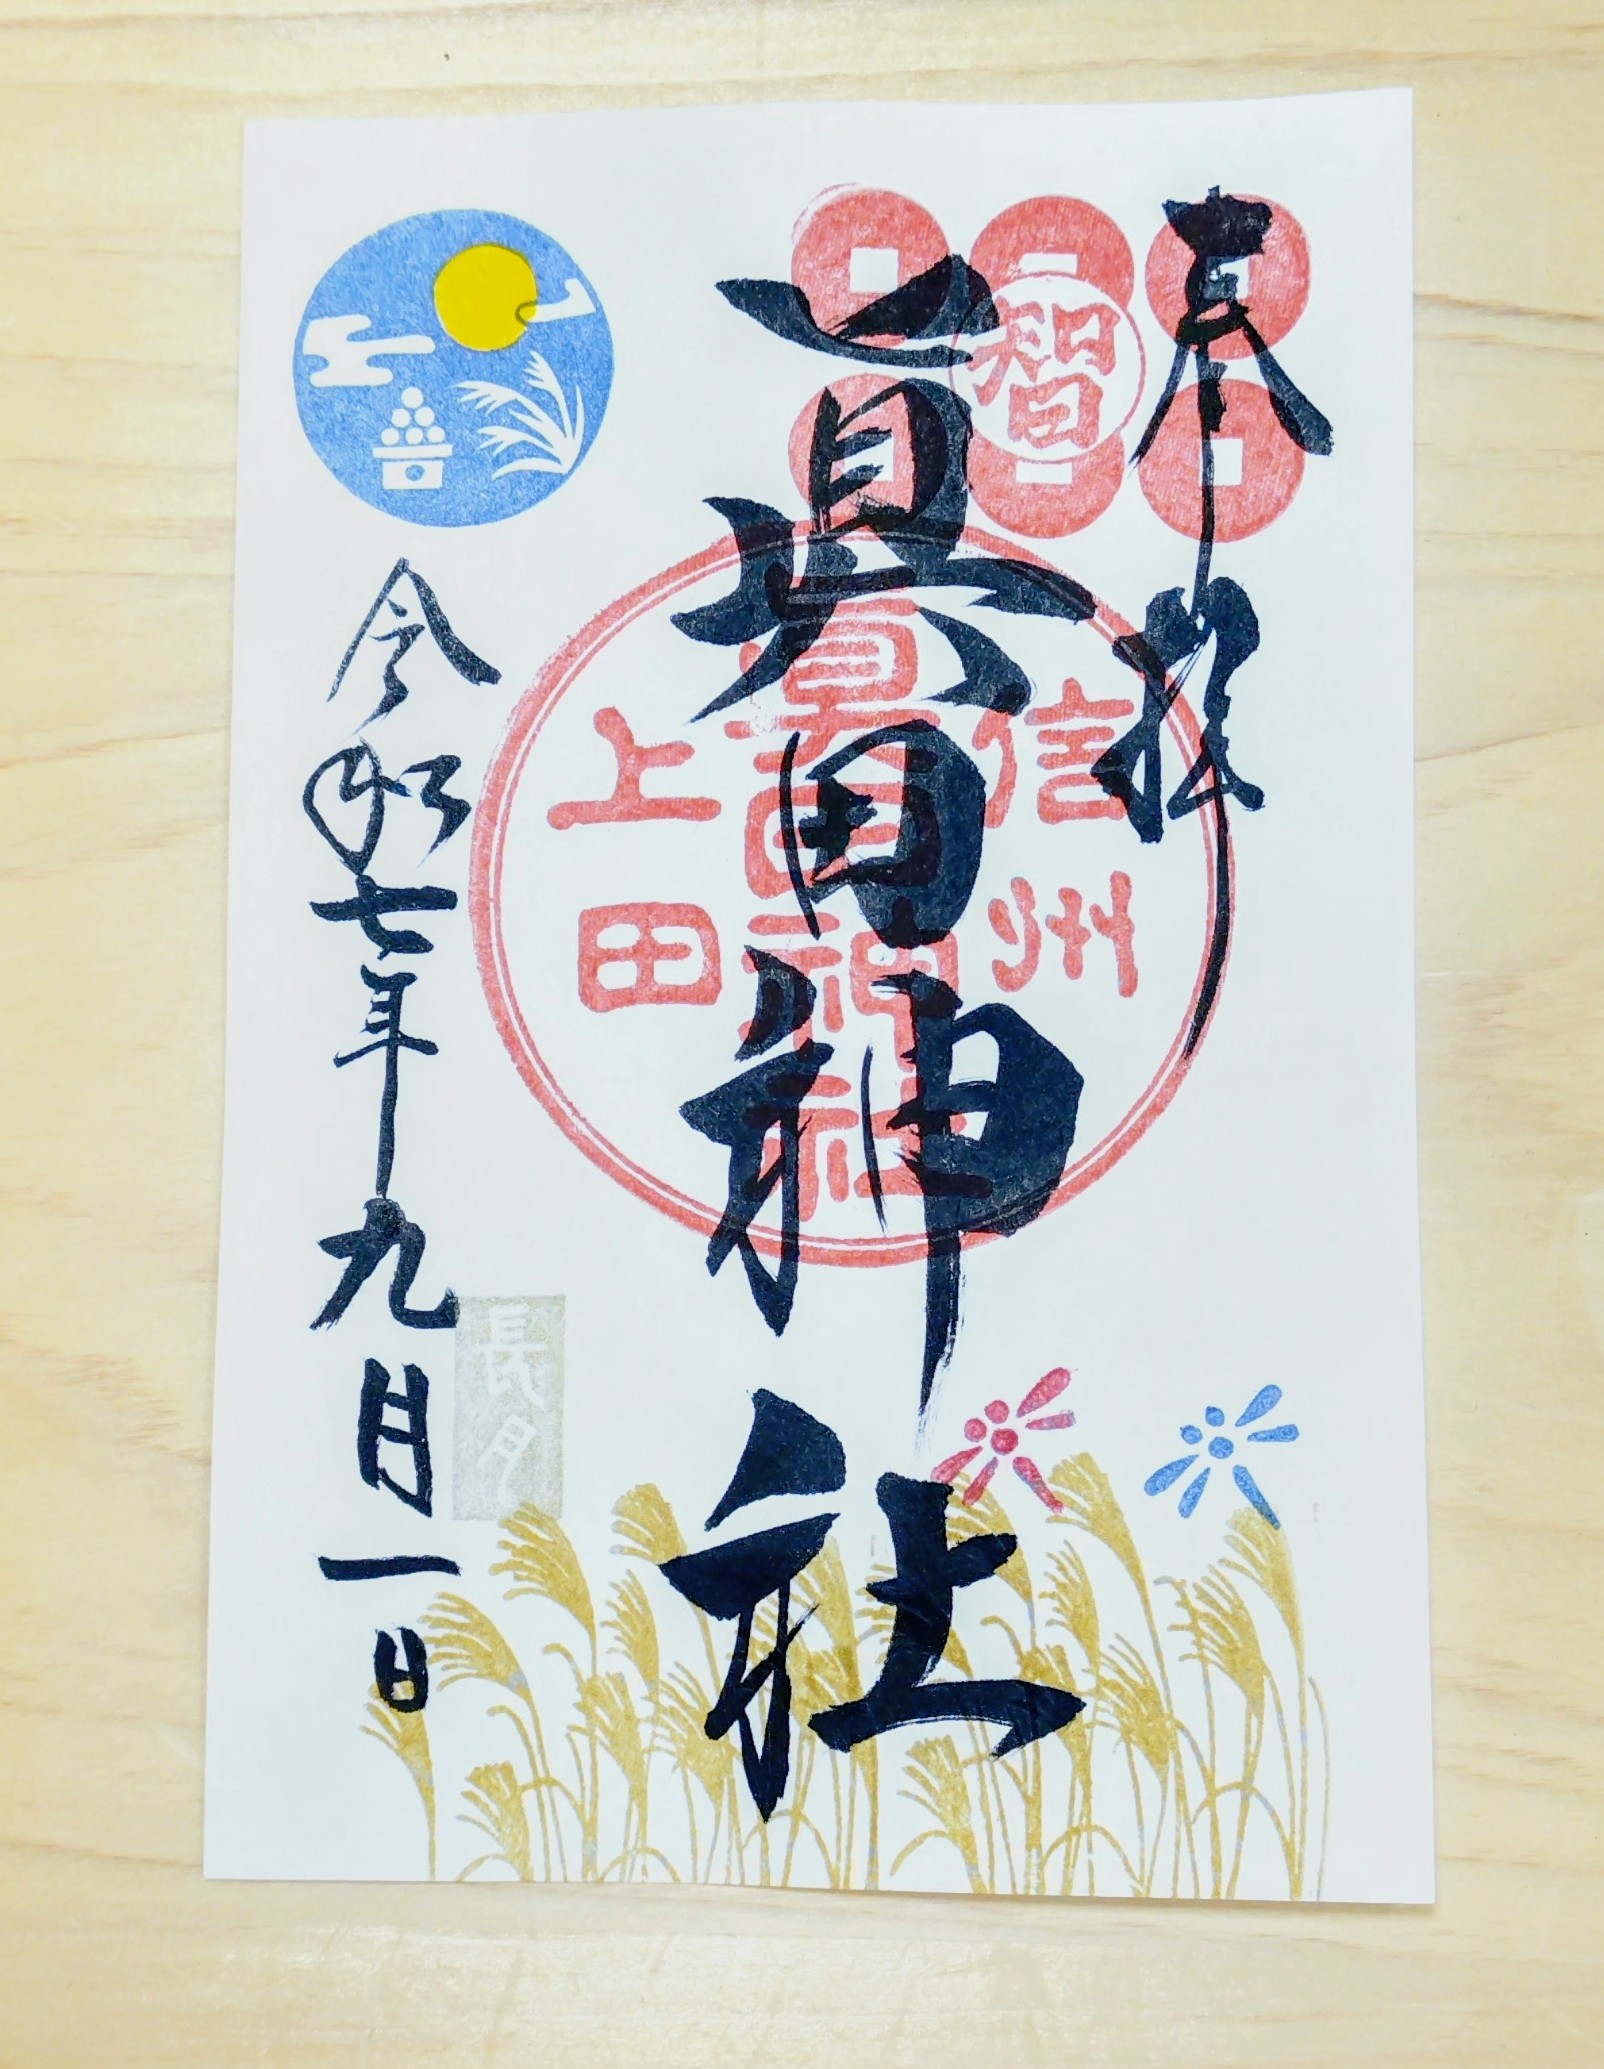 奉拝
智
眞田神社
信州
眞田神社
上田
令和七年九月一日
長月